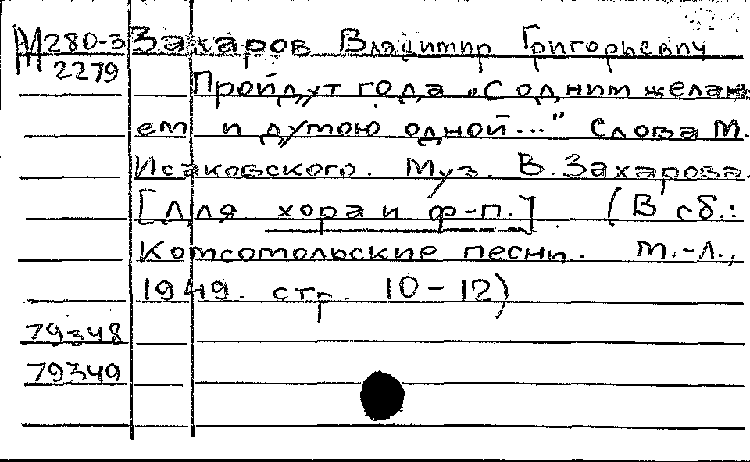 М280-3 Захаров Владимир Григорьевич
2279 Пройдут года „С одним желан
ем и думою одной..." Слова М.
Исаковского. Муз. В. Захарова.
[Для хора и ф-п.] (В сб.:
Комсомольские песни. М.-Л.,
1949. стр. 10-12)
79348
79349